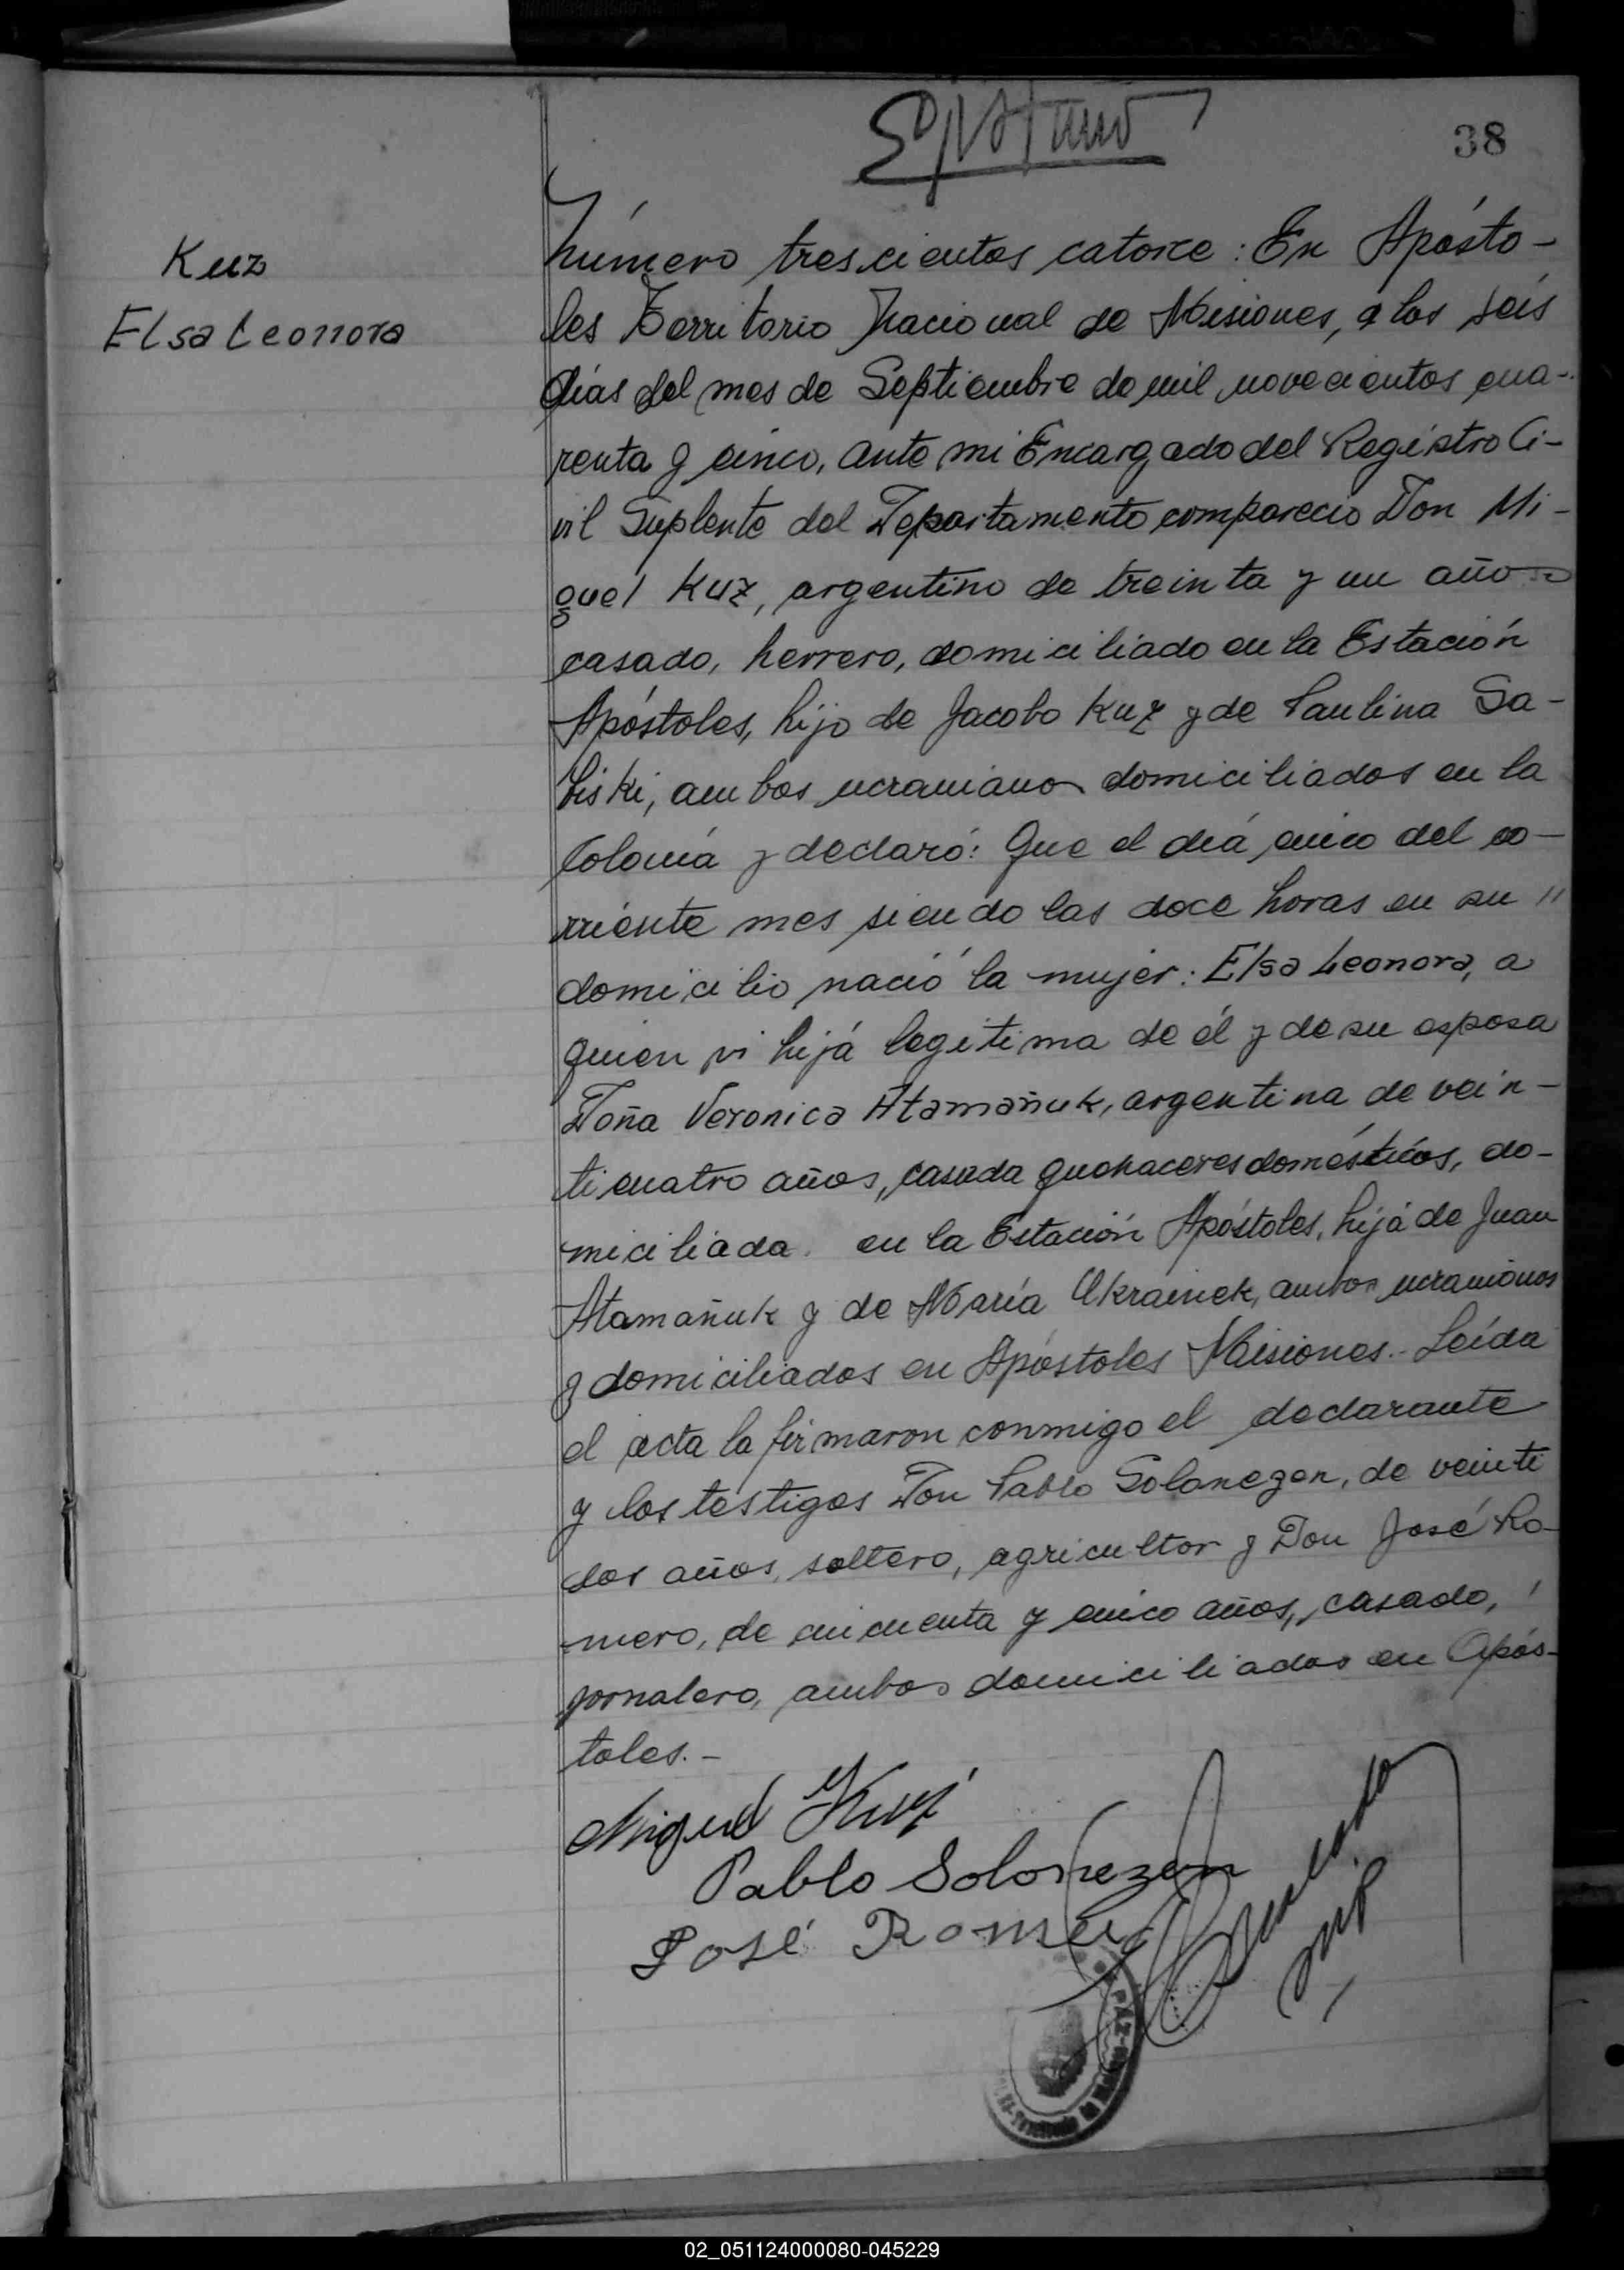 38
Kuz
Elsa Leonora
Número trescientos catorce: En Aposto-
les Territorio Nacional de Misiones, a los seis
días del mes de Septiembre de mil novecientos cua-
renta y cinco, ante mi Encargado del Registro Ci-
vil Suplente del Departamento compareció Don Mi-
guel Kuz, argentino de treinta y un años
casado, herrero, domiciliado en la Estación
Apóstoles, hijo de Jacobo Kuz y de Paulina Sa-
liski, ambos ucranianos domiciliados en la
Colonia y declaró: Que el día cinco del co-
rriente mes siendo las doce horas en su "
domicilio nació la mujer: Elsa Leonora, a
quien vi hija legitima de él y de su esposa
Doña Veronica Atamañuk, argentina de vein-
ti cuatro años, casada quehaceres domésticos, do-
miciliada. en la Estación Apóstoles, hija de Juan
Atamañuk y de María Ukrainek, ambos ucranianos
y domiciliados en Apóstoles Misiones.- Leída
el acta la firmaron conmigo el declarante
y los testigos Don Pablo Solonezen, de veinti
dos años, soltero, agricultor y Don José Ro-
mero, de cincuenta y cinco años, casado,
jornalero, ambos domiciliados en Após-
toles.-
Miguel Kuz
Pablo Solonezen
José Romer
PAZ
02_051124000080-045229